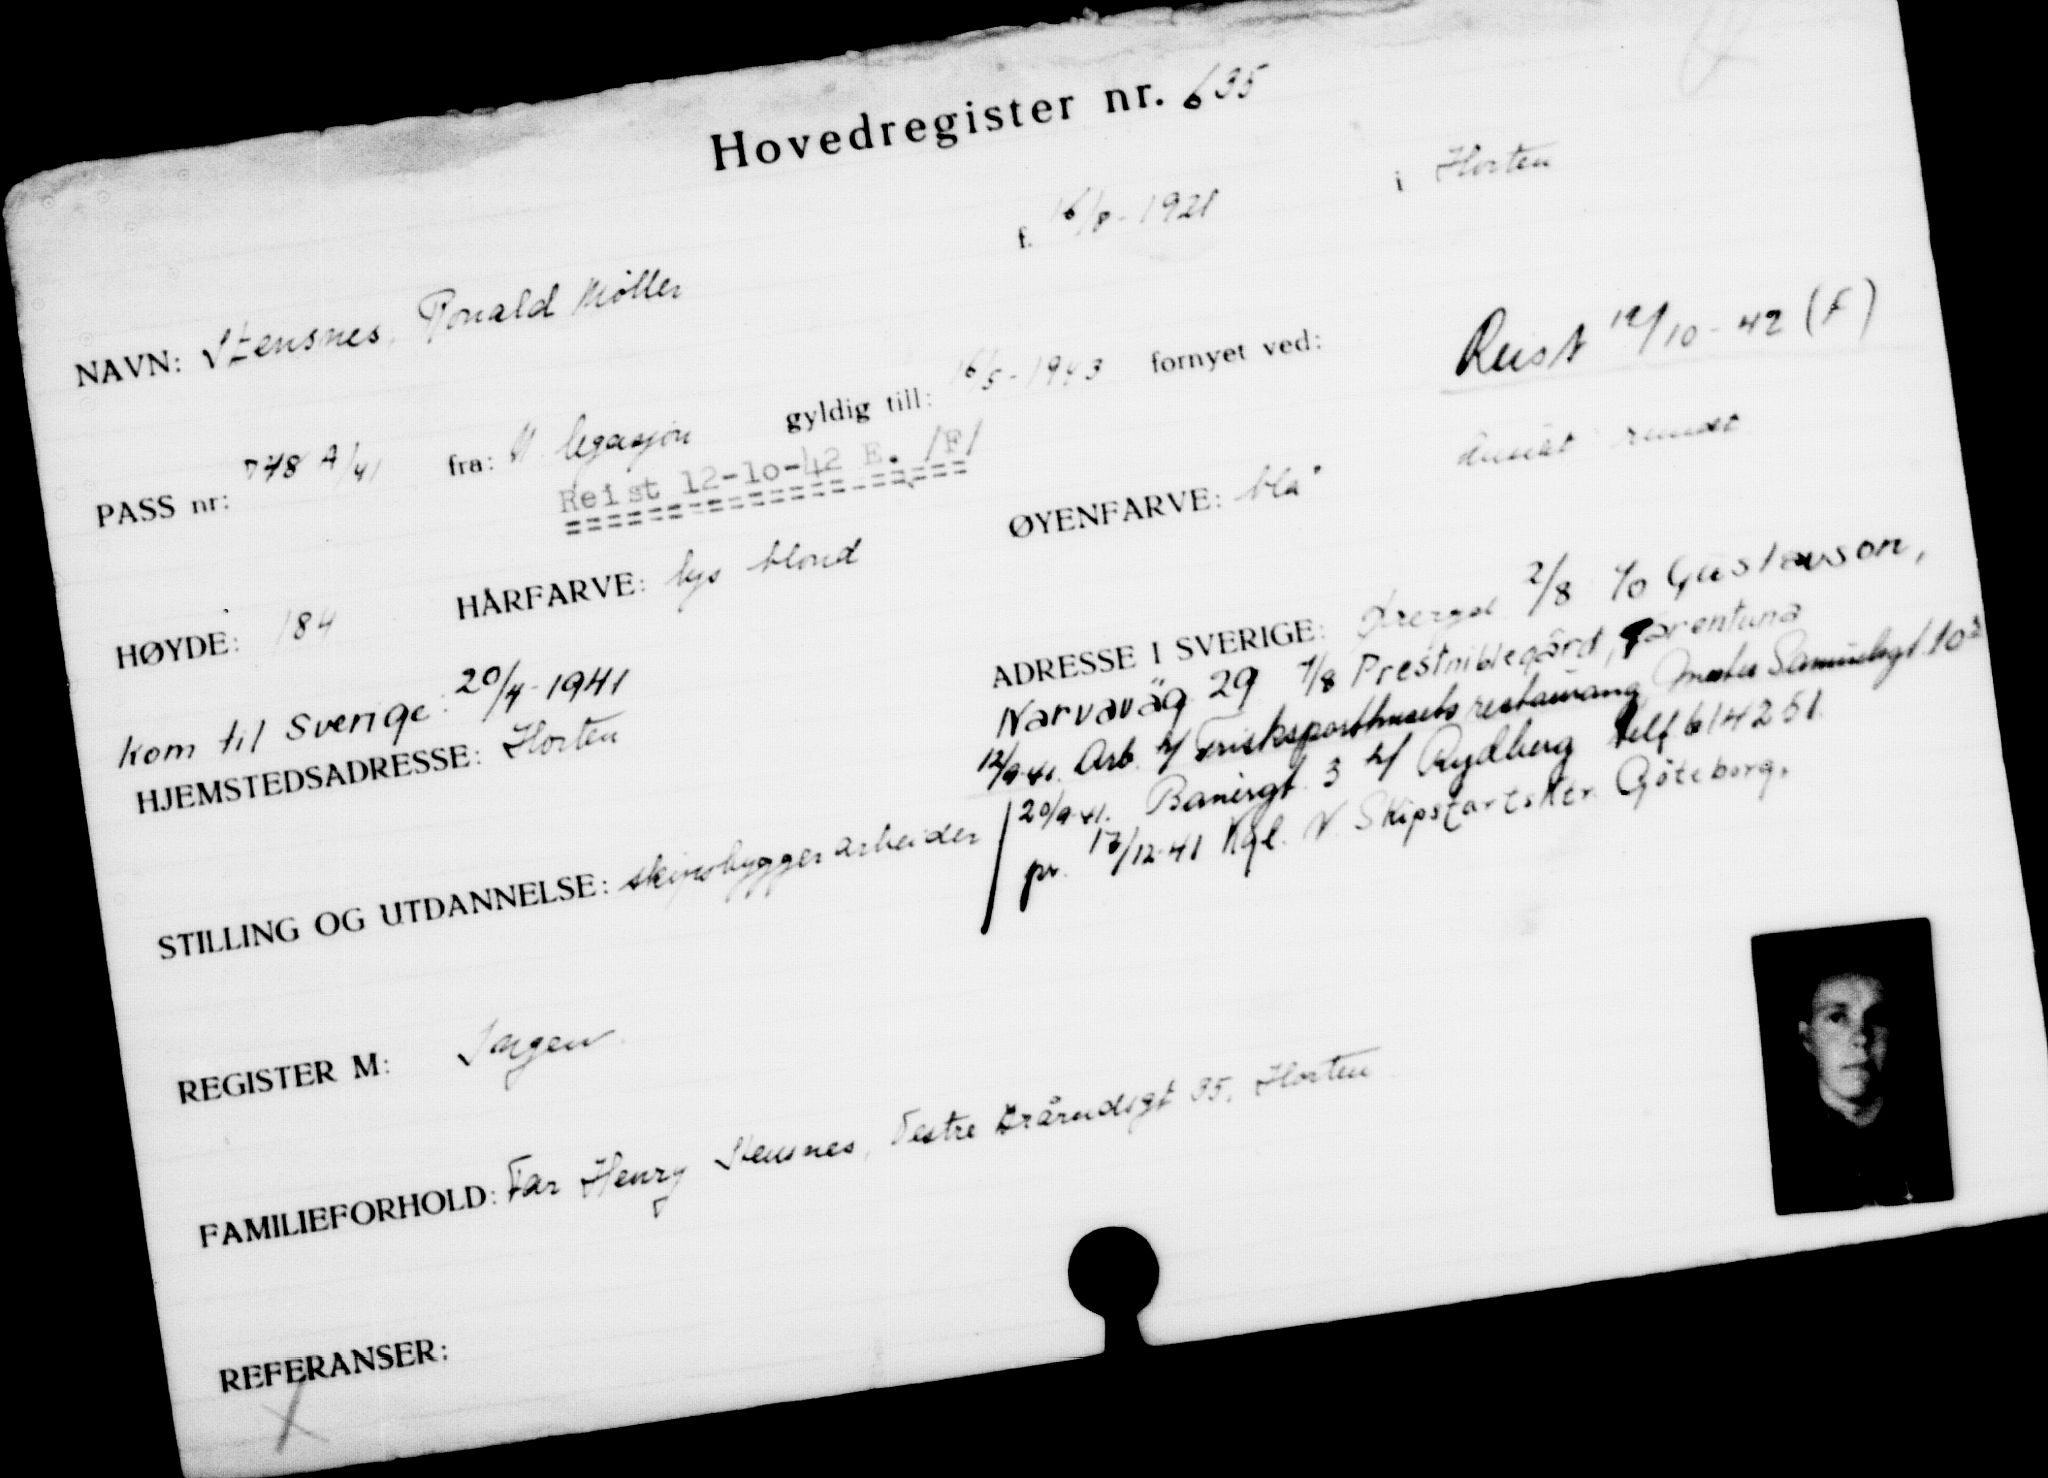 Hovedregister nr. 635
NAVN: Stensnes, Ronald Møller f. 16/8-1921 i Horten
PASS nr: 778 A/41 fra: N. legasjon gyldig till: 16/5-1943 fornyet ved: Reist 12/10-42 (F)
Reist 12-10-42 E. /F/
HØYDE: 184 HÅRFARVE: lys blond ØYENFARVE: blå Ansikt rundt
kom til Sverige: 20/4-1941
HJEMSTEDSADRESSE: Horten
ADRESSE I SVERIGE: 2/8 c/o Gustavson,
Narvaväg 29 1/8 Prestniblegård, Tarentuna
12/9-41. Arb. v/ Frisksporthusets restaurang Mäster Samuelsgt. 10
20/9-41. Banérgt. 3 v/ Rydberg telf 614251.
pr. 17/12-41 Kgl. N. Skipsfartsktr. Göteborg.
STILLING OG UTDANNELSE: skipsbyggerarbeider
REGISTER M: Ingen
FAMILIEFORHOLD: Far Henry Stensnes, Vestre Brårudsgt 35, Horten
REFERANSER:
X